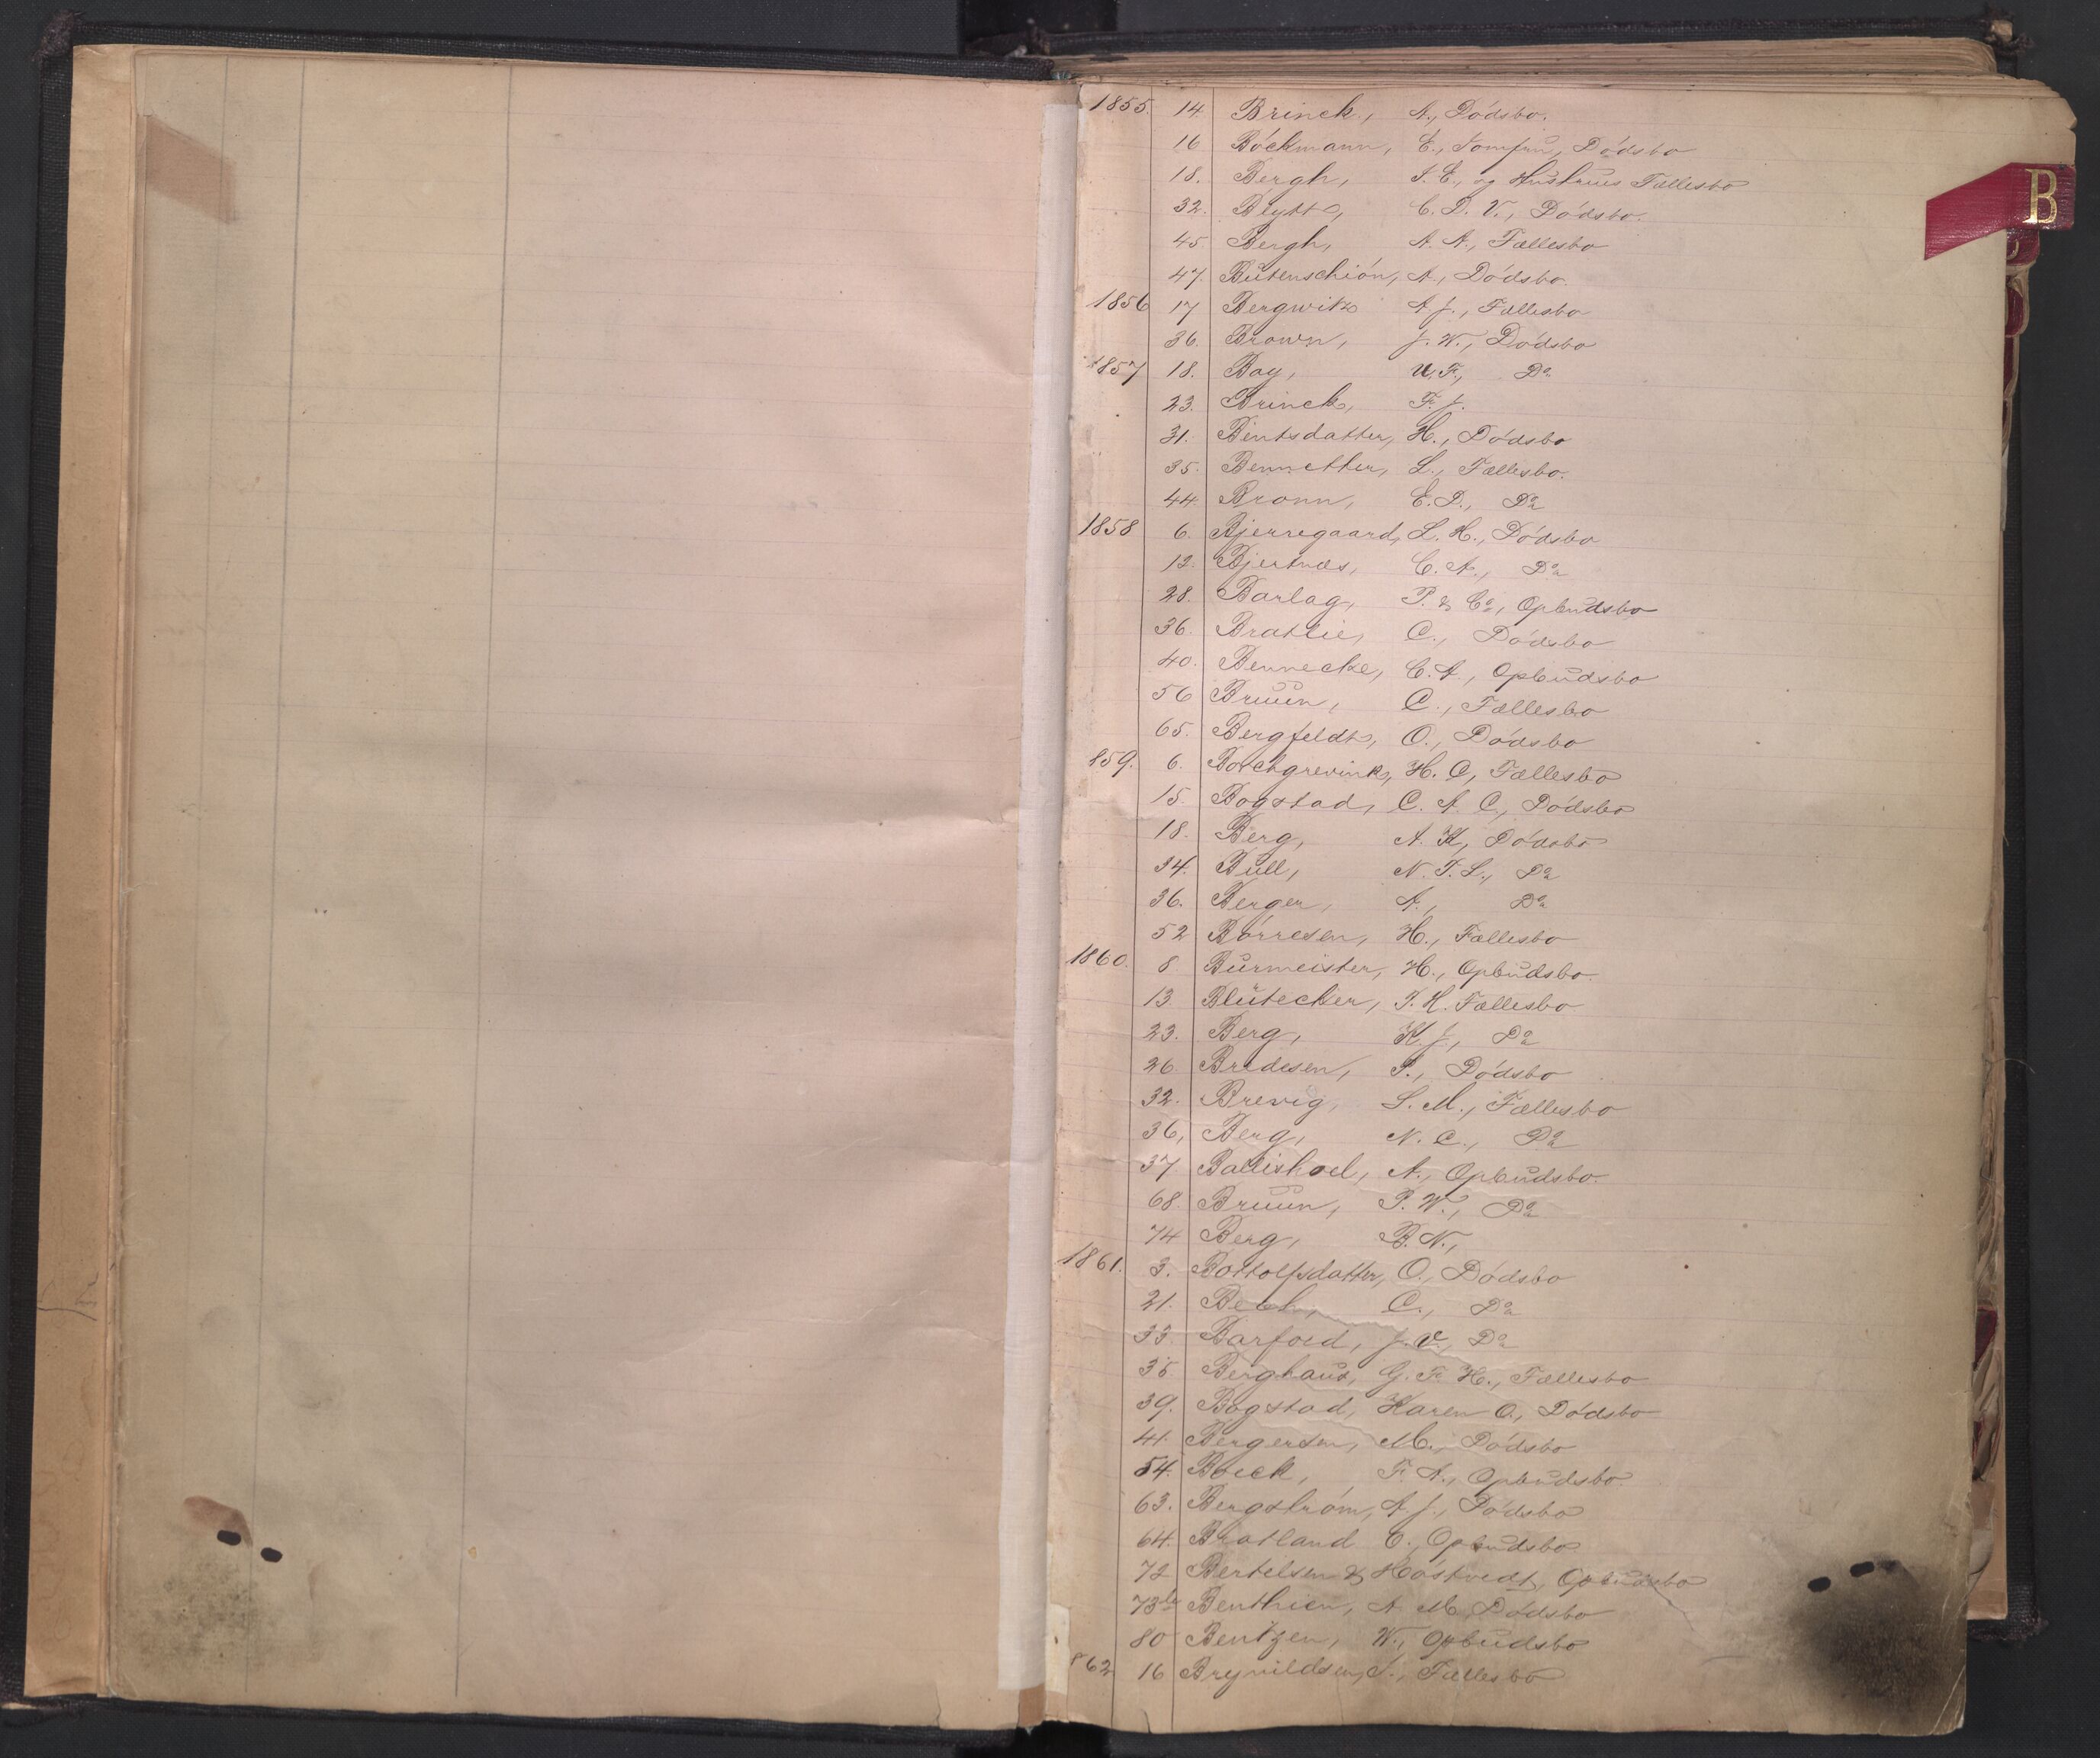 B
1855. 14. Brinck, A., Dödsbo.
16. Böckmann, E., Jomfru, Dödsbo
18. Bergh, I. E., og Hustrues Fællesbo
32. Blytt, C. D. V., Dödsbo.
45. Bergh, A. A., Fællesbo
47. Butenschiön, A., Dödsbo.
1856 17 Bergwitz A. J., Fællesbo
36. Brown, J. W., Dödsbo
1857 18. Bay, U. F., Do
23. Brinck, F. J.
31. Bentsdatter, H., Dödsbo
35. Bennetter, L., Fællesbo.
44. Bronn, E. D., Do
1858 6. Bjerregaard, L. H., Dödsbo
12. Bjertnæs, C. A., Do
28. Barlag, P. & Co, Opbudsbo
36. Bratlie, C., Dödsbo
40. Bennecke, C. A., Opbudsbo
56 Bruun, C., Fællesbo
65. Bergfeldt, O., Dödsbo
859. 6. Borchgrevink, H. C, Fællesbo
15. Bogstad, C. A. C., Dödsbo
18. Berg, A. K, Dödsbo
34. Bull, N. T. L., Do
36. Berger, A., Do
52 Börresen, H., Fællesbo
1860. 8. Burmeister, H., Opbudsbo.
13 Blütecker, J. H. Fællesbo
23. Berg, K. J., Do
26. Bredesen, P., Dödsbo
32. Brevig, L. M., Fællesbo
36, Berg, N. C., Do
37. Ballishoel, A., Opbudsbo.
68. Bruun, P. W., Do
74 Berg, B. N.,
1861. 3. Bottolfsdatter, O., Dödsbo
21. Bech, C., Do
33. Barfoed, J. V., Do
35 Berghaus, G. F. H., Fællesbo
39. Bogstad, Karen O., Dödsbo
41. Bergersen, M., Dödsbo
54. Boeck, F. A., Opbudsbo.
63. Bergström, A. J., Dödsbo
64. Bratland C., Opbudsbo
72 Bertelsen & Höstvedt, Opbudsbo
73 Benthien, A. M. Dödsbo
80 Bentzen, W., Opbudsbo
862 16 Brynildsen, Fællesbo